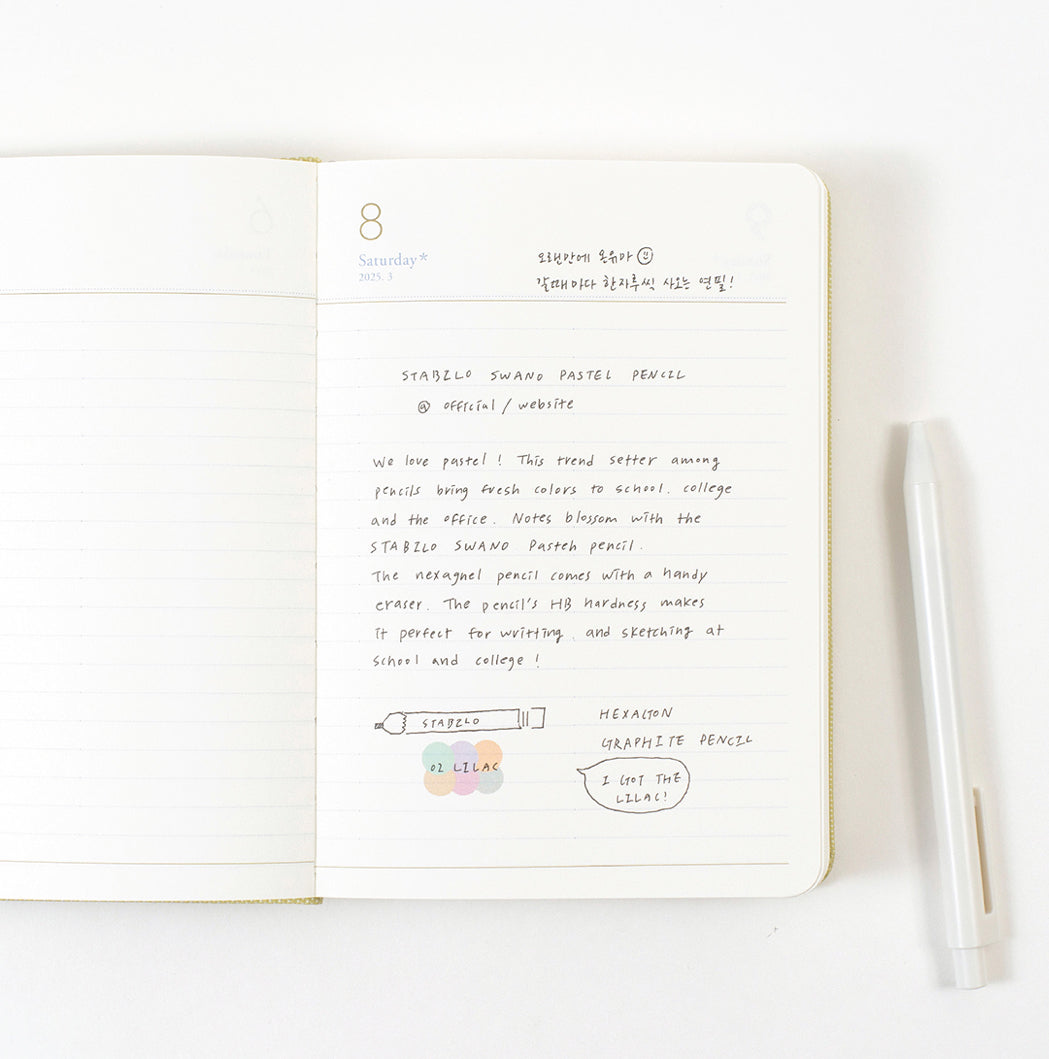 8
Saturday*
2025. 3
오랜만에 온유마
갈때마다 한자루씩 사오는 연필!
STABILO SWANO PASTEL PENCIL
@ official / website
We love pastel ! This trend setter among
pencils bring fresh colors to school, college
and the office. Notes blossom with the
STABILO SWANO Pasteh pencil.
The nexagnel pencil comes with a handy
eraser. The pencil's HB hardness makes
it perfect for writting, and sketching at
school and college !
STABILO
02 LILAC
HEXAGON
GRAPHITE PENCIL
I GOT THE
LILAC!